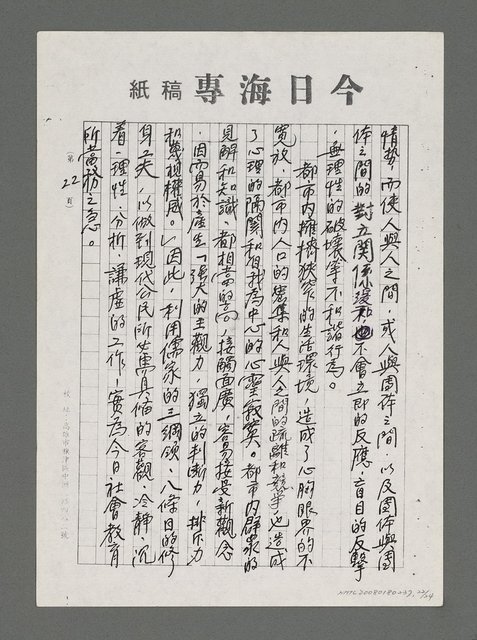 今日海專稿紙
情勢，而使人與人之間，或人與團体之間，以及團体與團
体之間的對立關係緩和，也不會立即的反應，盲目的反擊
，無理性的破壞等不和諧行為。
都市內擁擠狹窄的生活環境，造成了心胸眼界的不
寬放，都市內人口的密集和人與人之間的疏離和競爭，也造成
了心理的隔閡和自我為中心的心靈寂寞。都市內群眾的
見解和知識，都相當的高，接觸面廣，容易接受新觀念
，因而易於產生「強大的主觀力，獨立的判斷力，排斥力
和蔑視權威。」因此，利用儒家的三綱領、八條目的修
身工夫，以做到現代公民所必需具備的客觀、冷靜、沉
着、理性、分析、謙虛的工作！實為今日社會教育
所當務之急。
第22頁
校址：高雄市旗津區中洲
NMTL20080180237 22/24